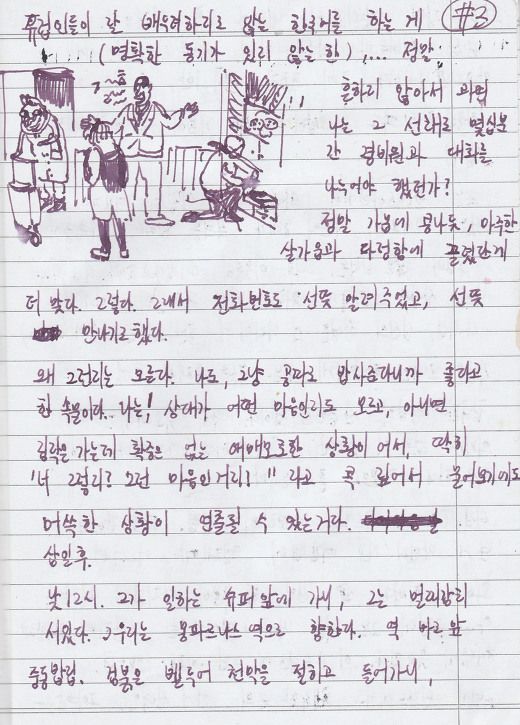 #3
유럽인들이 잘 배우려하지도 않는 한국어를 하는 게
(명확한 동기가 있지 않는 한),... 정말
흔하지 않아서 과연
나는 그 선택로 몇십분
간 경비원과 대화를
나누어야 했던가?
정말 가뭄에 콩나듯, 아주한
살가움과 다정함에 끌렸던게
더 맞다. 그렇다. 그래서 전화번호도 선뜻 알려주었고, 선뜻
만나기로했다.
왜 그런지는 모른다. 나도, 그냥 공짜로 밥사준다니까 좋다고
한 속물이다. 나는! 상대가 어떤 마음인지도 모르고, 아니면
짐작은 가는데 확증은 없는 애매모호한 상황이어서, 딱히
'너 그렇지? 그런 마음인거지!" 라고 콕 짚어서 물어보기에도
머쓱한 상황이 연출될 수 있는거라.
삼일후.
낮12시. 그가 일하는 슈퍼앞에 가니, 그는 멀찌감치
서있다. 우리는 몽파르나스역으로 향한다. 역 바로 앞
중동밥집. 검붉은 벨두어 천막을 젖히고 들어가니,